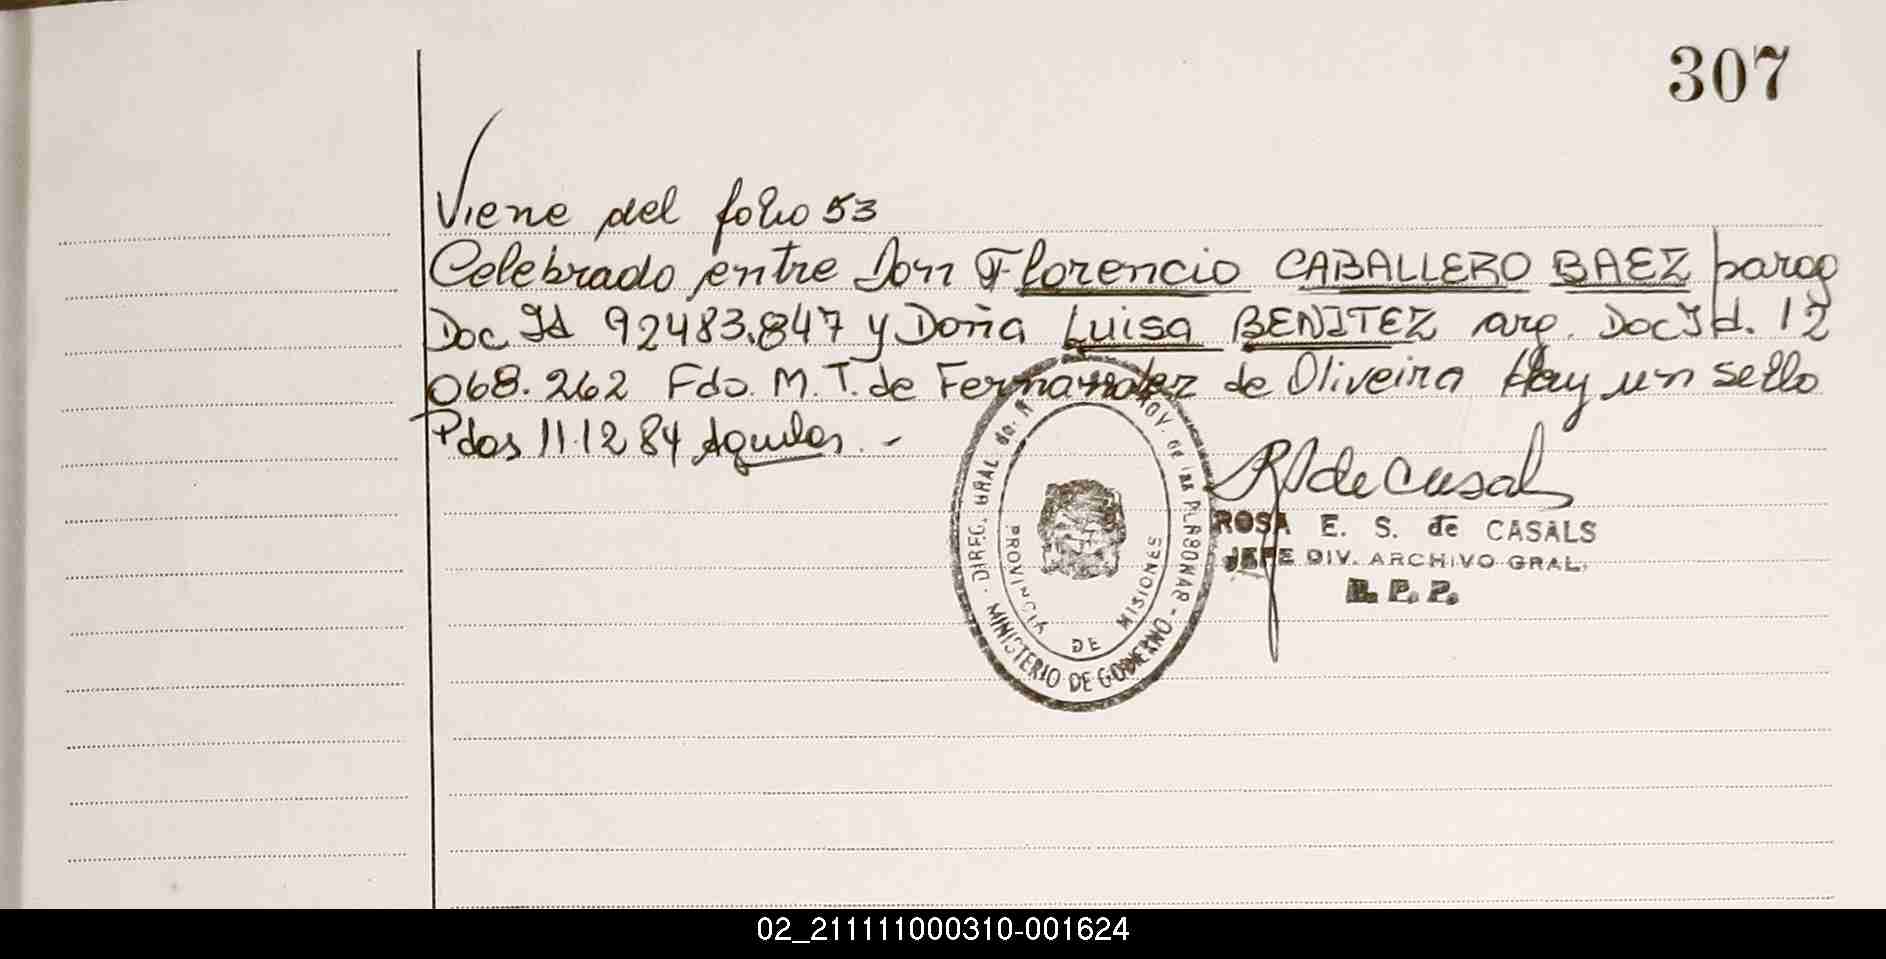 307
Viene del folio 53
Celebrado entre Don Florencio CABALLERO BAEZ parag
Doc Id 92483.847 y Doña Luisa BENITEZ arg. Doc Id. 12
068.262 Fdo. M. T. de Fernandez de Oliveira Hay un sello
Pdas 11.12 84
DIREC. GRAL de. R
PROV. de las PERSONAS
MINISTERIO DE GOBIERNO
PROVINCIA DE MISIONES
ROSA E. S. de CASALS
JEFE DIV. ARCHIVO GRAL.
R. P. P.
02_211111000310-001624